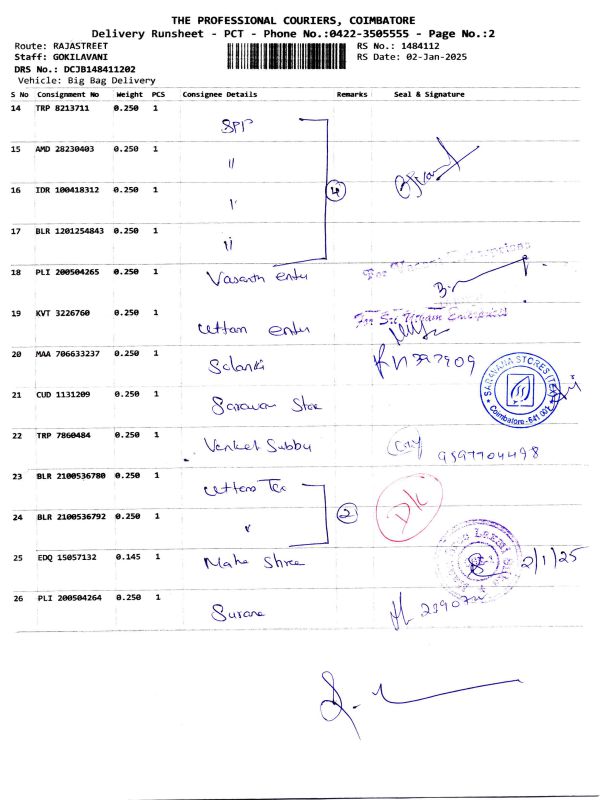 THE PROFESSIONAL COURIERS, COIMBATORE
Delivery Runsheet - PCT - Phone No.:0422-3505555 - Page No.:2
Route: RAJASTREET
RS No.: 1484112
Staff: GOKILAVANI
RS Date: 02-Jan-2025
DRS No.: DCJB148411202
Vehicle: Big Bag Delivery
S No Consignment No Weight PCS Consignee Details Remarks Seal & Signature
14 TRP 8213711 0.250 1 SPP
15 AMD 28230403 0.250 1 "
16 IDR 100418312 0.250 1 " 4
17 BLR 1201254843 0.250 1 "
18 PLI 200504265 0.250 1 Vasanth enter For
19 KVT 3226760 0.250 1 uttam enter For Sri Enterprises
20 MAA 706633237 0.250 1 Solanki
21 CUD 1131209 0.250 1 Saravan Store SARAVANA STORES (TEX) Coimbatore-641 001
22 TRP 7860484 0.250 1 Venket Subbu 9597704498
23 BLR 2100536780 0.250 1 uttam Tex
24 BLR 2100536792 0.250 1 " 2
25 EDQ 15057132 0.145 1 Maha Shree 2/1/25
26 PLI 200504264 0.250 1 Surana